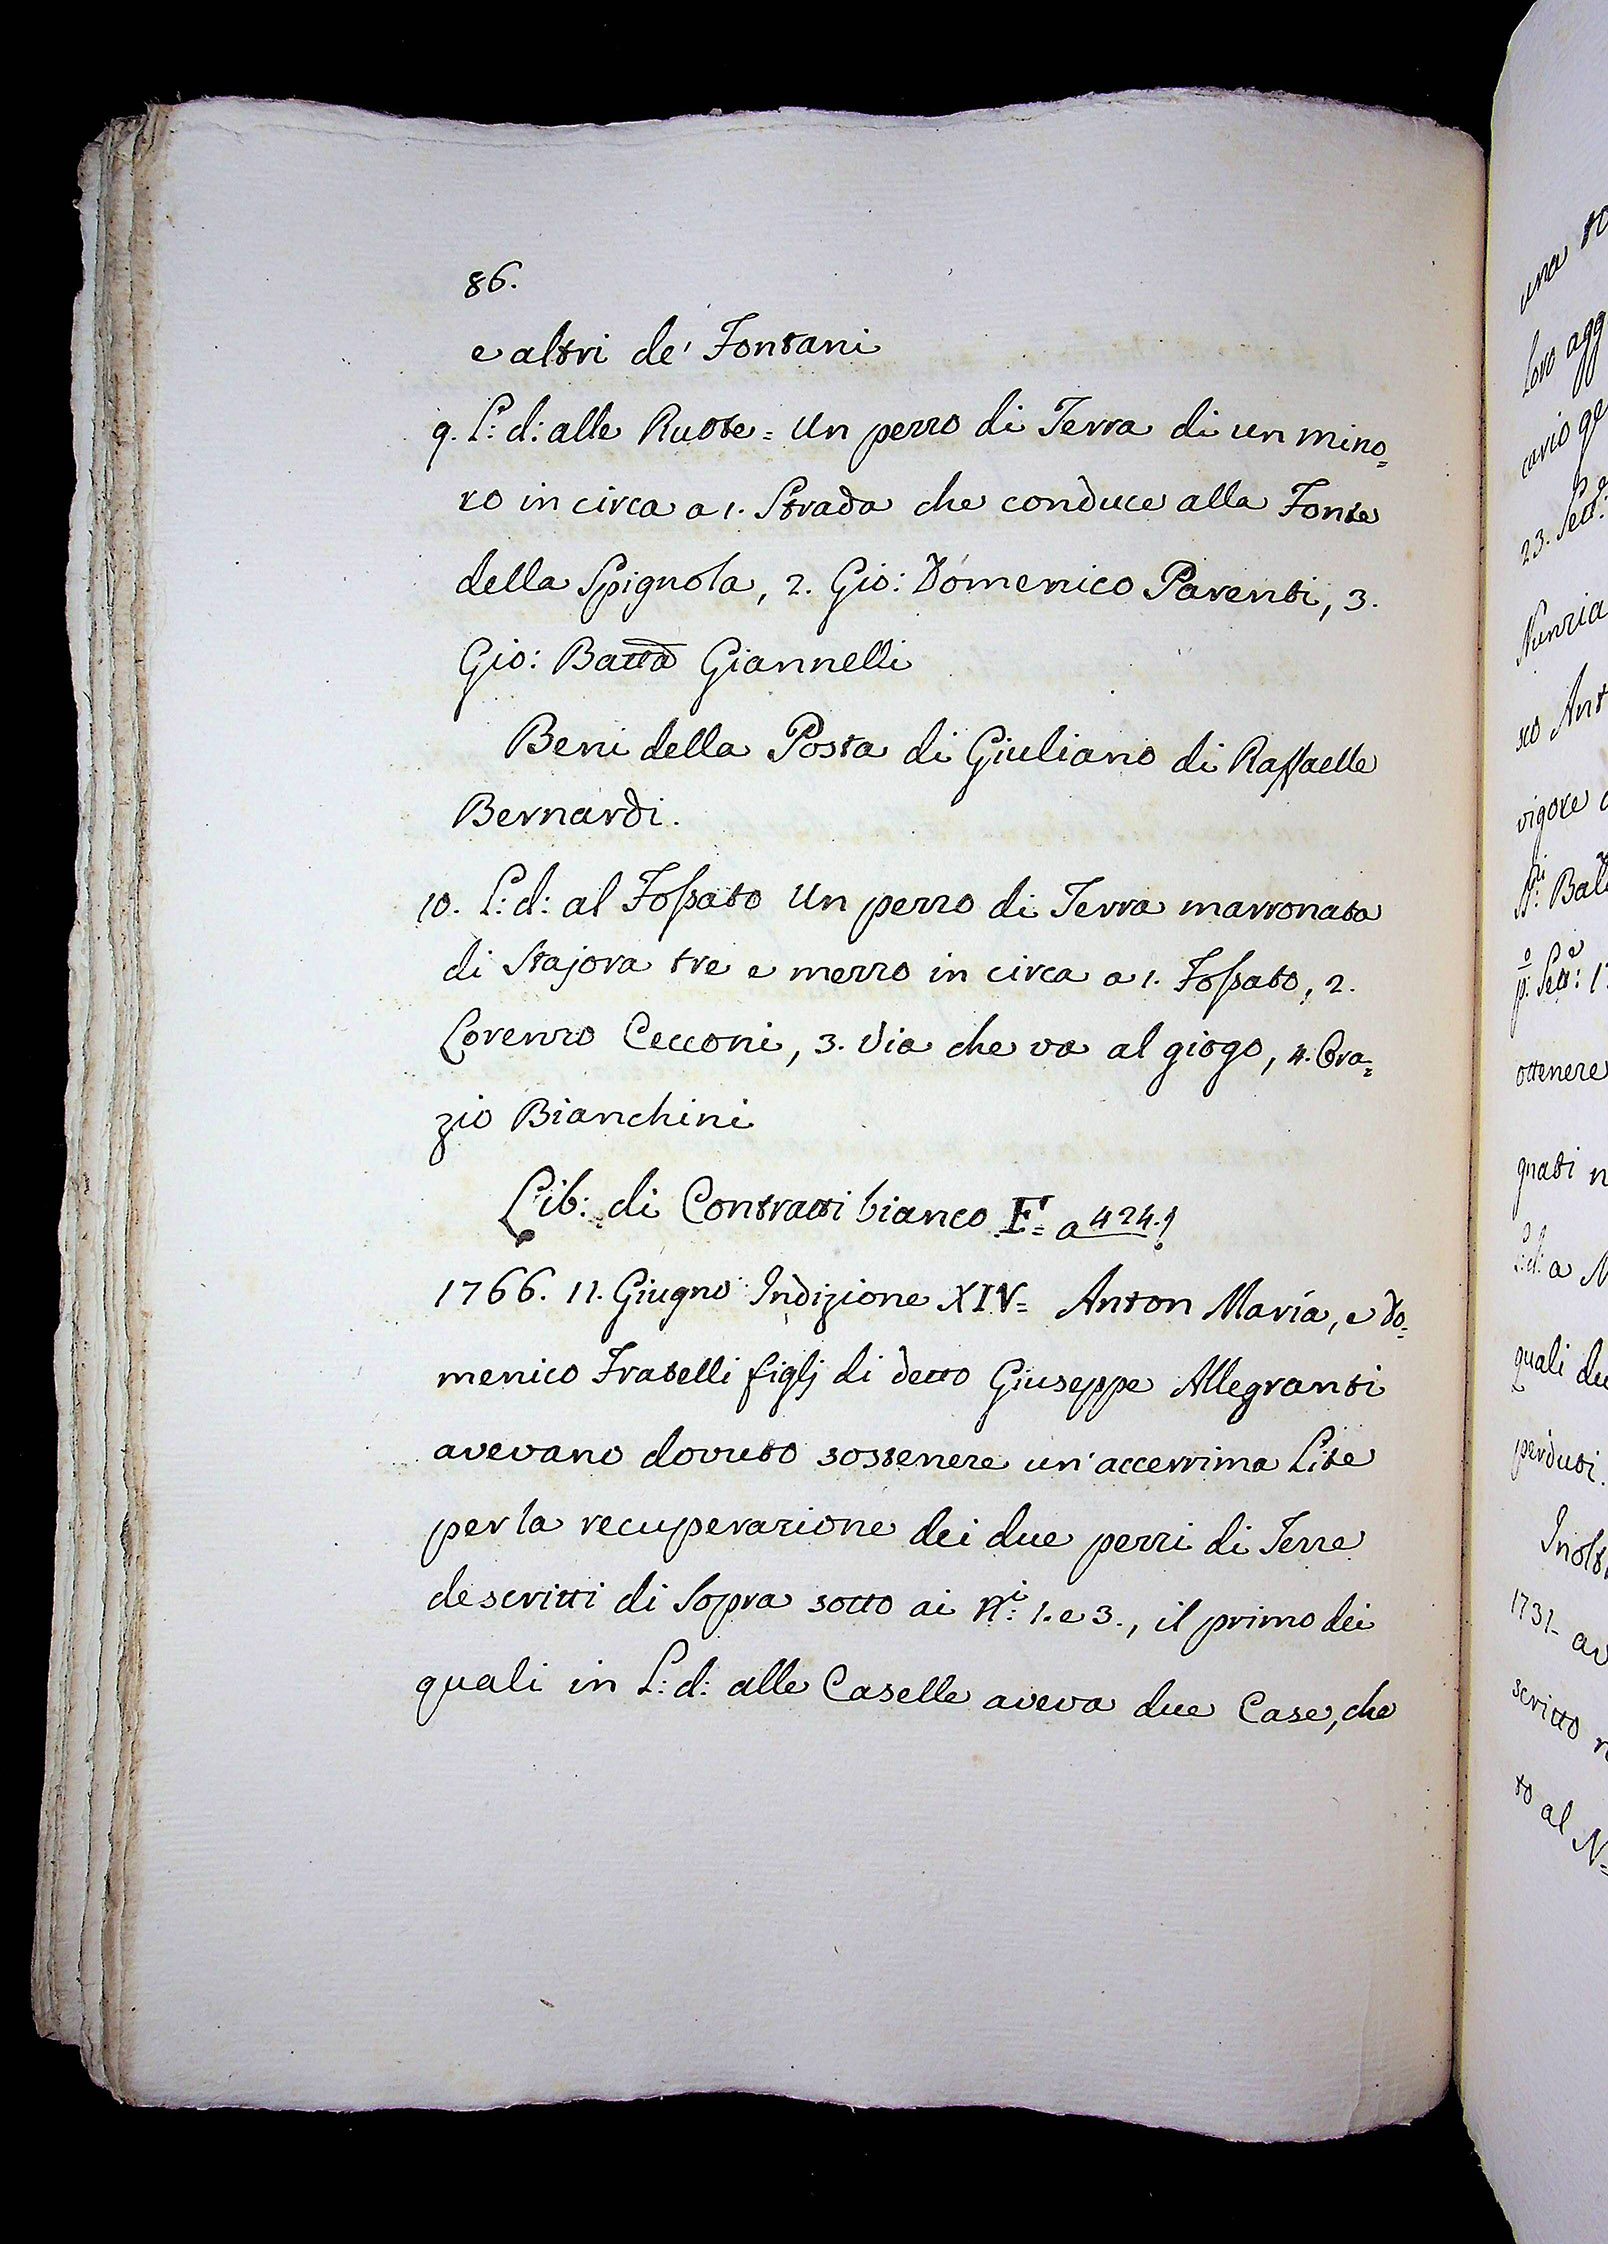 86.
e altri de' Fontani
9. L: d: alle Ruote = Un pezzo di Terra di un mino=
ro in circa a 1. Strada che conduce alla Fonte
della Spignola, 2. Gio: Domenico Parenti, 3.
Gio: Batta Giannelli
Beni della Posta di Giuliano di Raffaelle
Bernardi.
10. L: d: al Fossato Un pezzo di Terra marronata
di Stajora tre e mezzo in circa a 1. Fossato, 2.
Lorenzo Cecconi, 3. Via che va al giogo, 4. Ora=
zio Bianchini
Lib: di Contratti bianco F= a 424.
1766. 11. Giugno Indizione XIV= Anton Maria, e Do=
menico Fratelli figlj di detto Giuseppe Allegranti
avevano dovuto sostenere un'accerrima Lite
per la recuperazione dei due pezzi di Terre
descritti di Sopra sotto ai Ni: 1. e 3., il primo dei
quali in L: d: alle Caselle aveva due Case, che
una
loro agg
cario ge
23. Sett:
Nunzia
sco Ant
vigore
Bat
ottenere
gnati n
a M
quali du
perduti.
Inolt
1731- av
scritto
to al N=